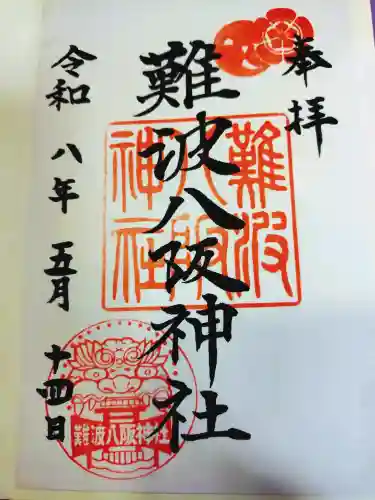 奉拝
難波八阪神社
難波八阪神社
令和八年五月十四日
難波八阪神社